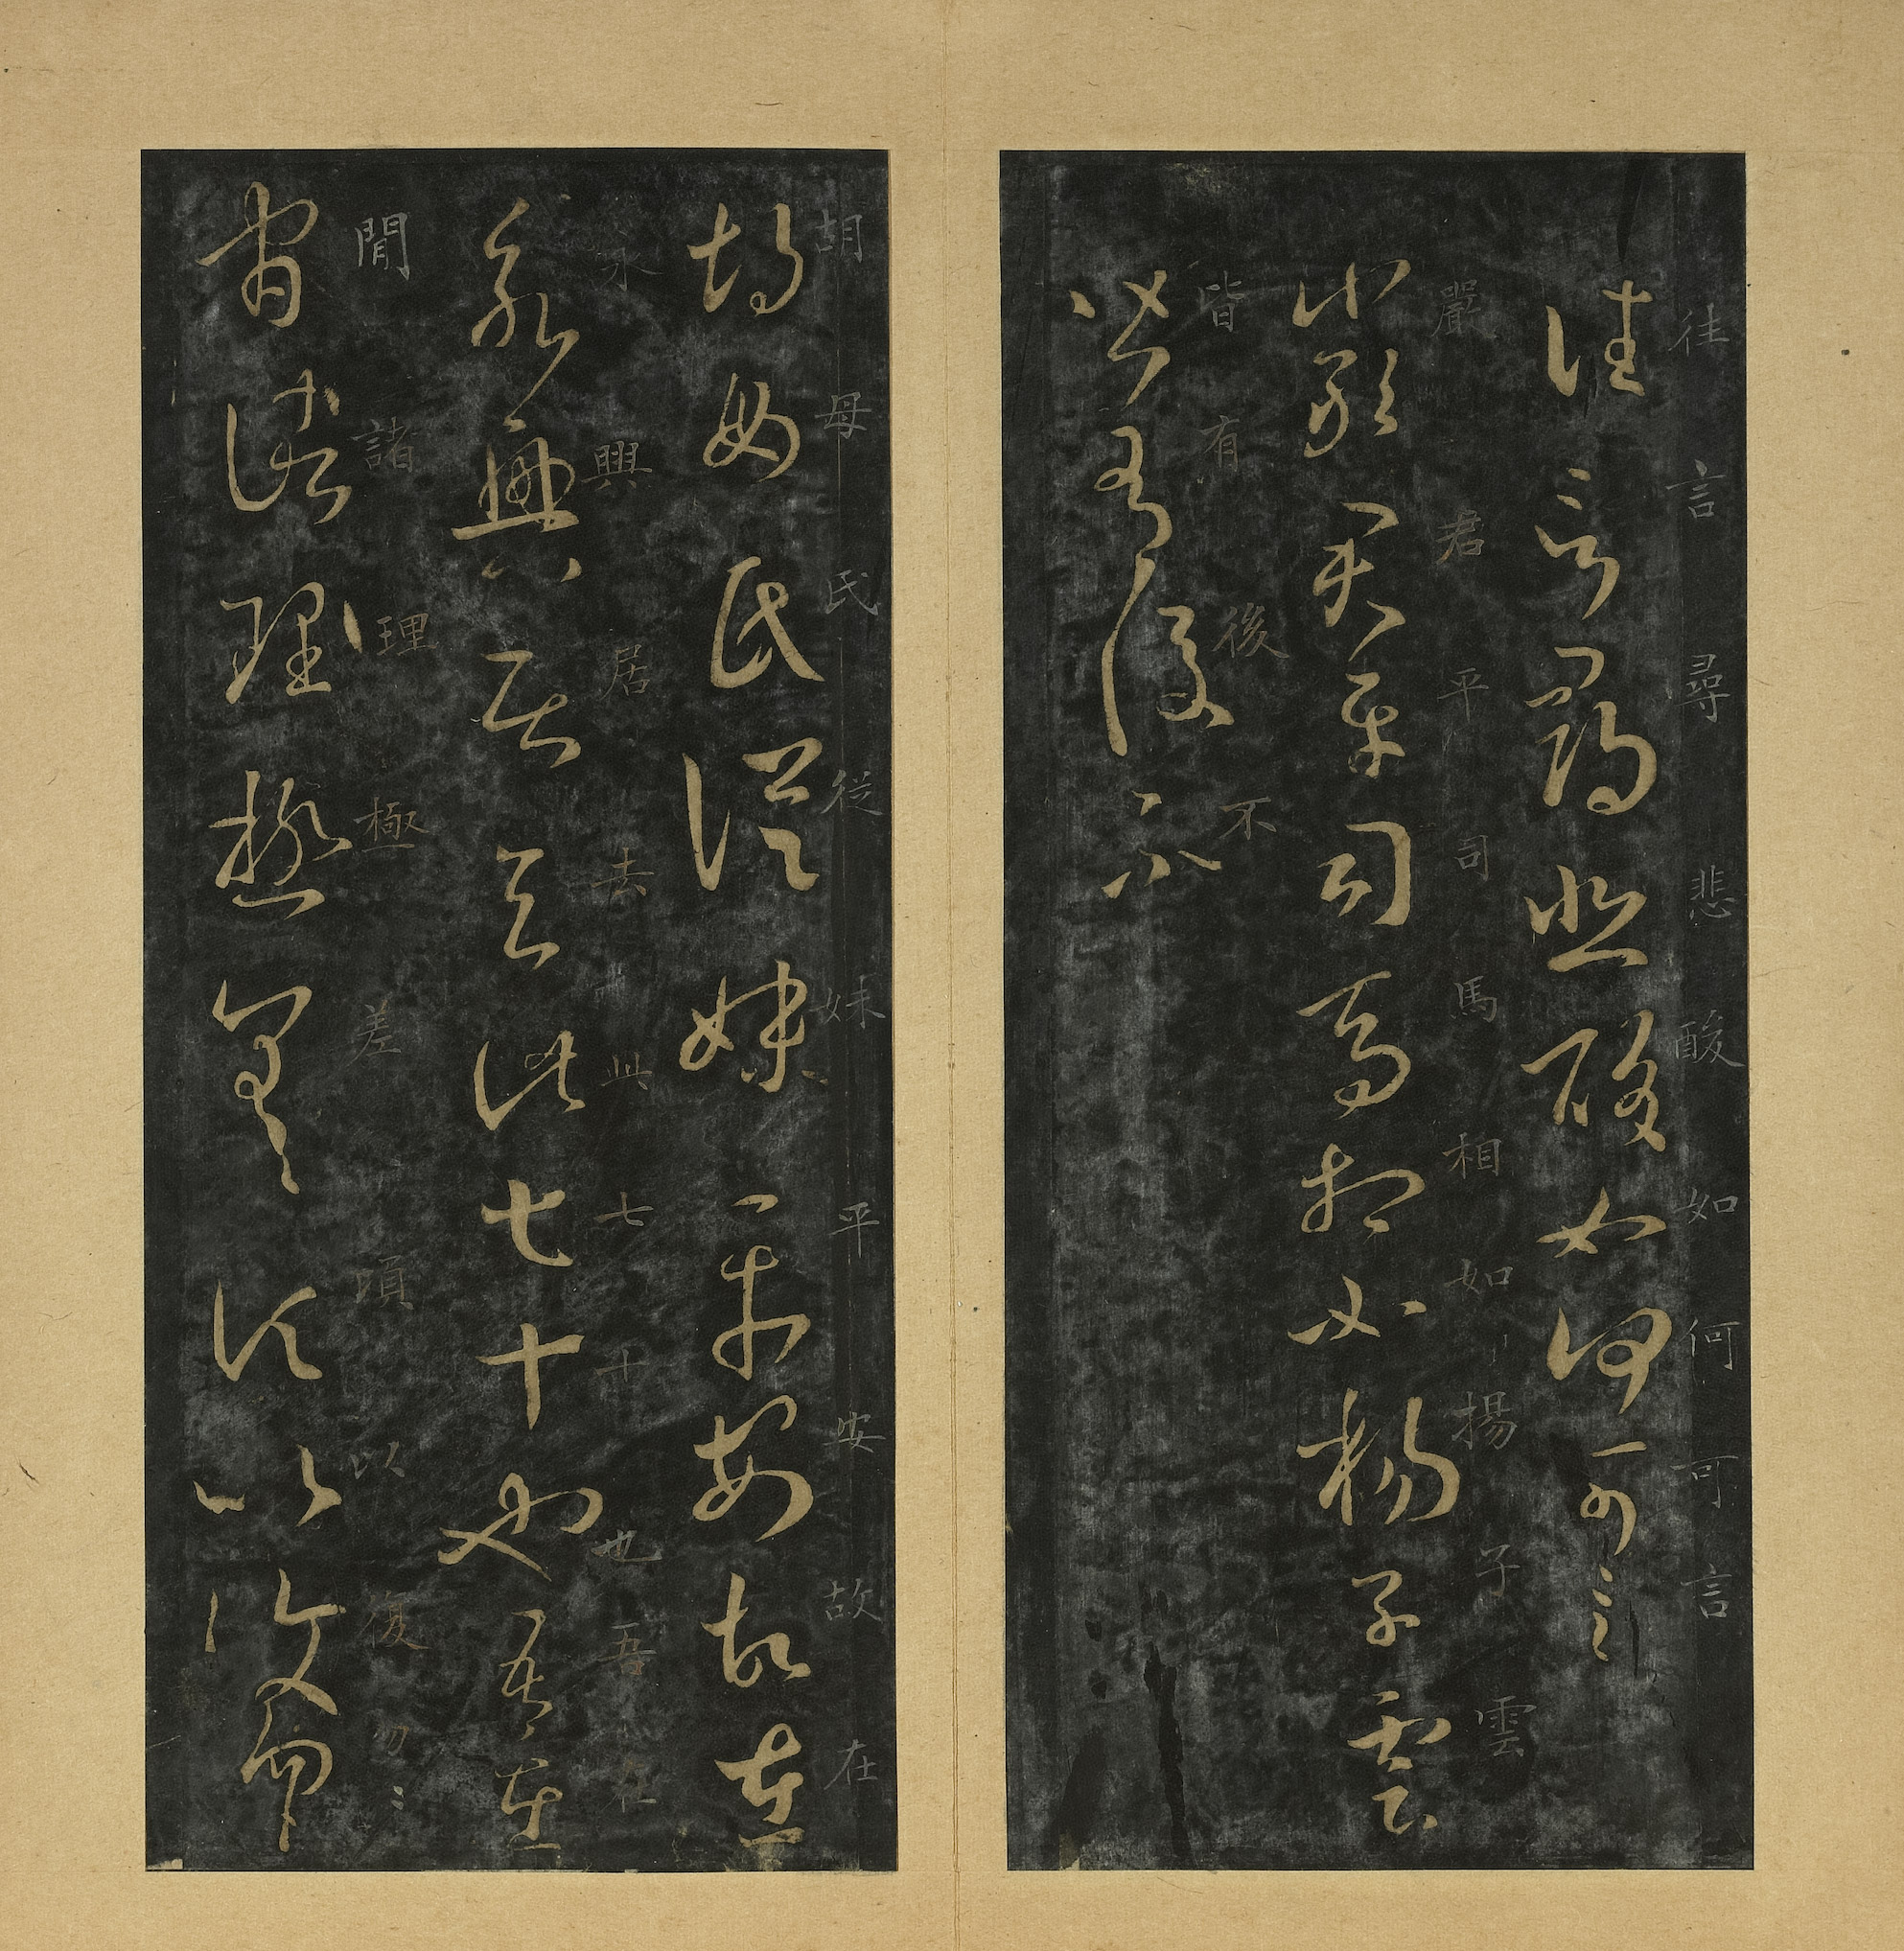 往言尋悲酸如何可言
往言尋悲酸如何可言
嚴君平司馬相如揚子雲
嚴君平司馬相如楊子雲
皆有後不
皆有後不
胡母氏從妹平安故在
胡母氏從妹平安故在
永興居去此七十也吾在
永興居去此七十也吾在
閒諸理極差頃以復勿〻
官諸理極差頃以復勿〻